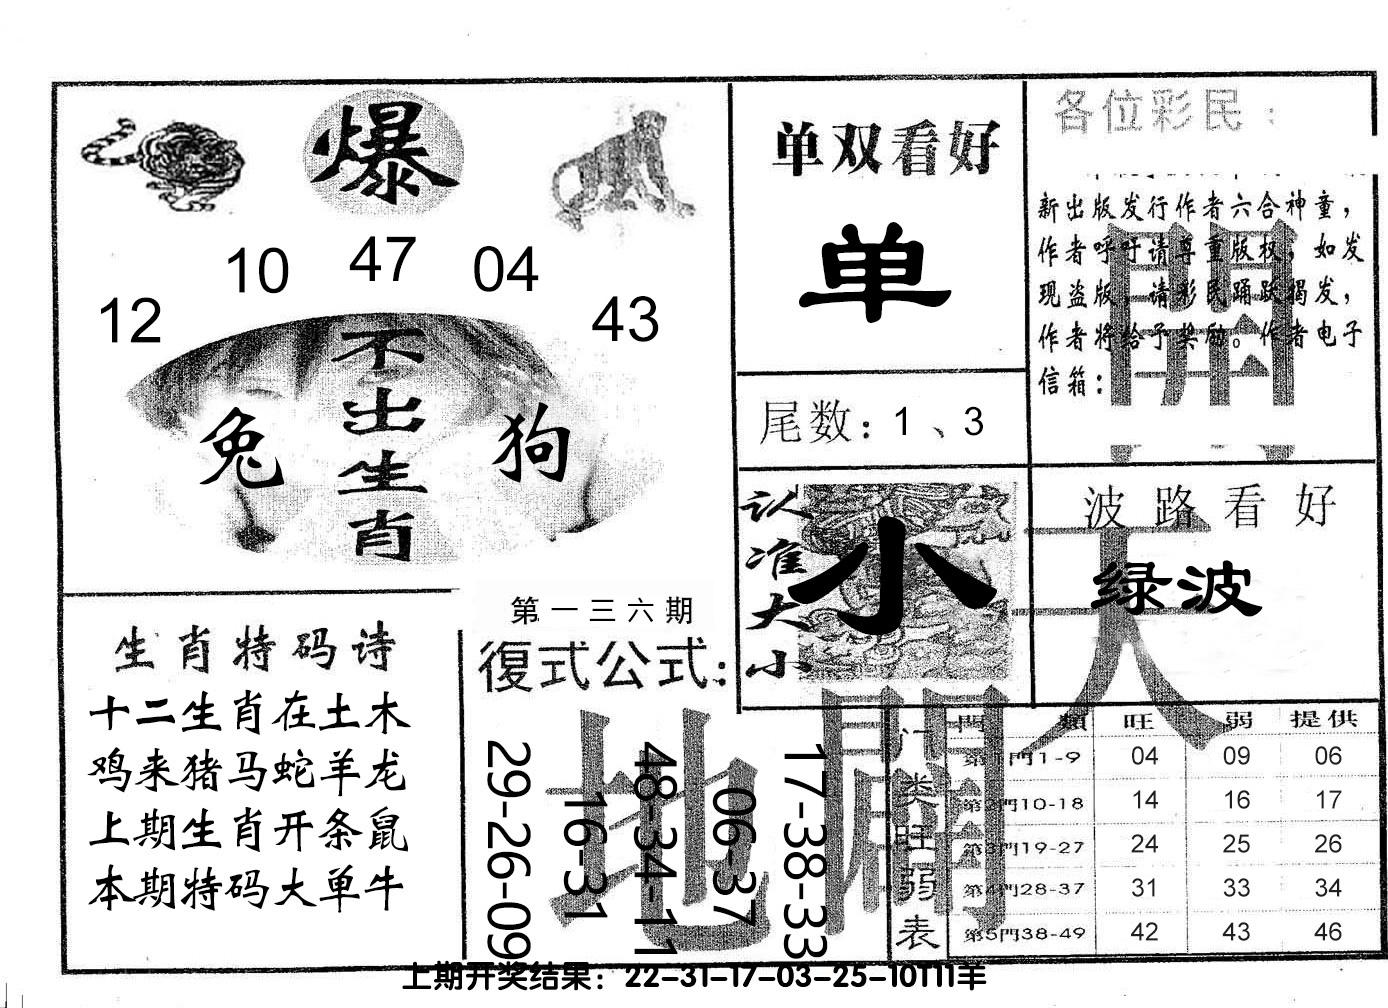 爆
12 10 47 04 43
不出生肖
兔 狗
单双看好
单
尾数：1、3
认准大小
小
各位彩民：
新出版发行作者六合神童，
作者呼吁请尊重版权，如发
现盗版，请彩民踊跃揭发，
作者将给予奖励。作者电子
信箱：
開
波路看好
绿波
天
生肖特码诗
十二生肖在土木
鸡来猪马蛇羊龙
上期生肖开条鼠
本期特码大单牛
第一三六期
復式公式：
29-26-09
16-31
48-34-11
06-37
17-38-33
地
門类旺弱表
門類 旺 弱 提供
第1門1-9 04 09 06
第2門10-18 14 16 17
第3門19-27 24 25 26
第4門28-37 31 33 34
第5門38-49 42 43 46
上期开奖结果：22-31-17-03-25-10T11羊